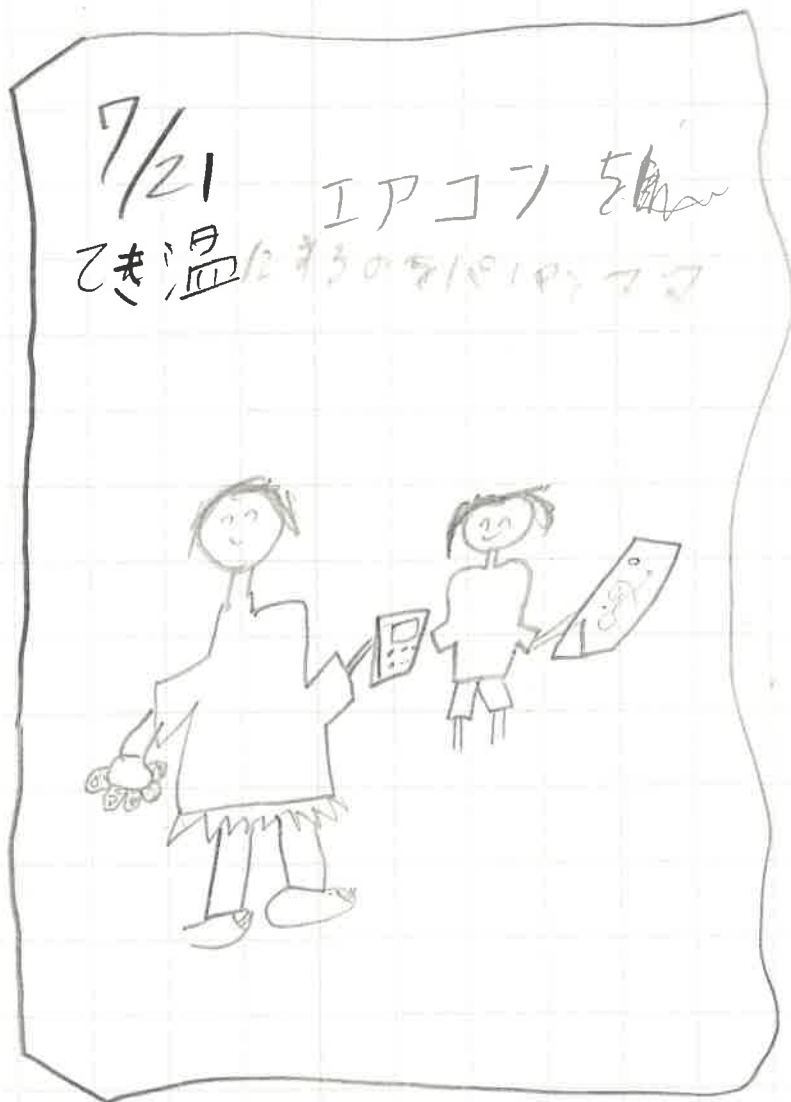 7/21
エアコンを
てき温にするのを
ママ